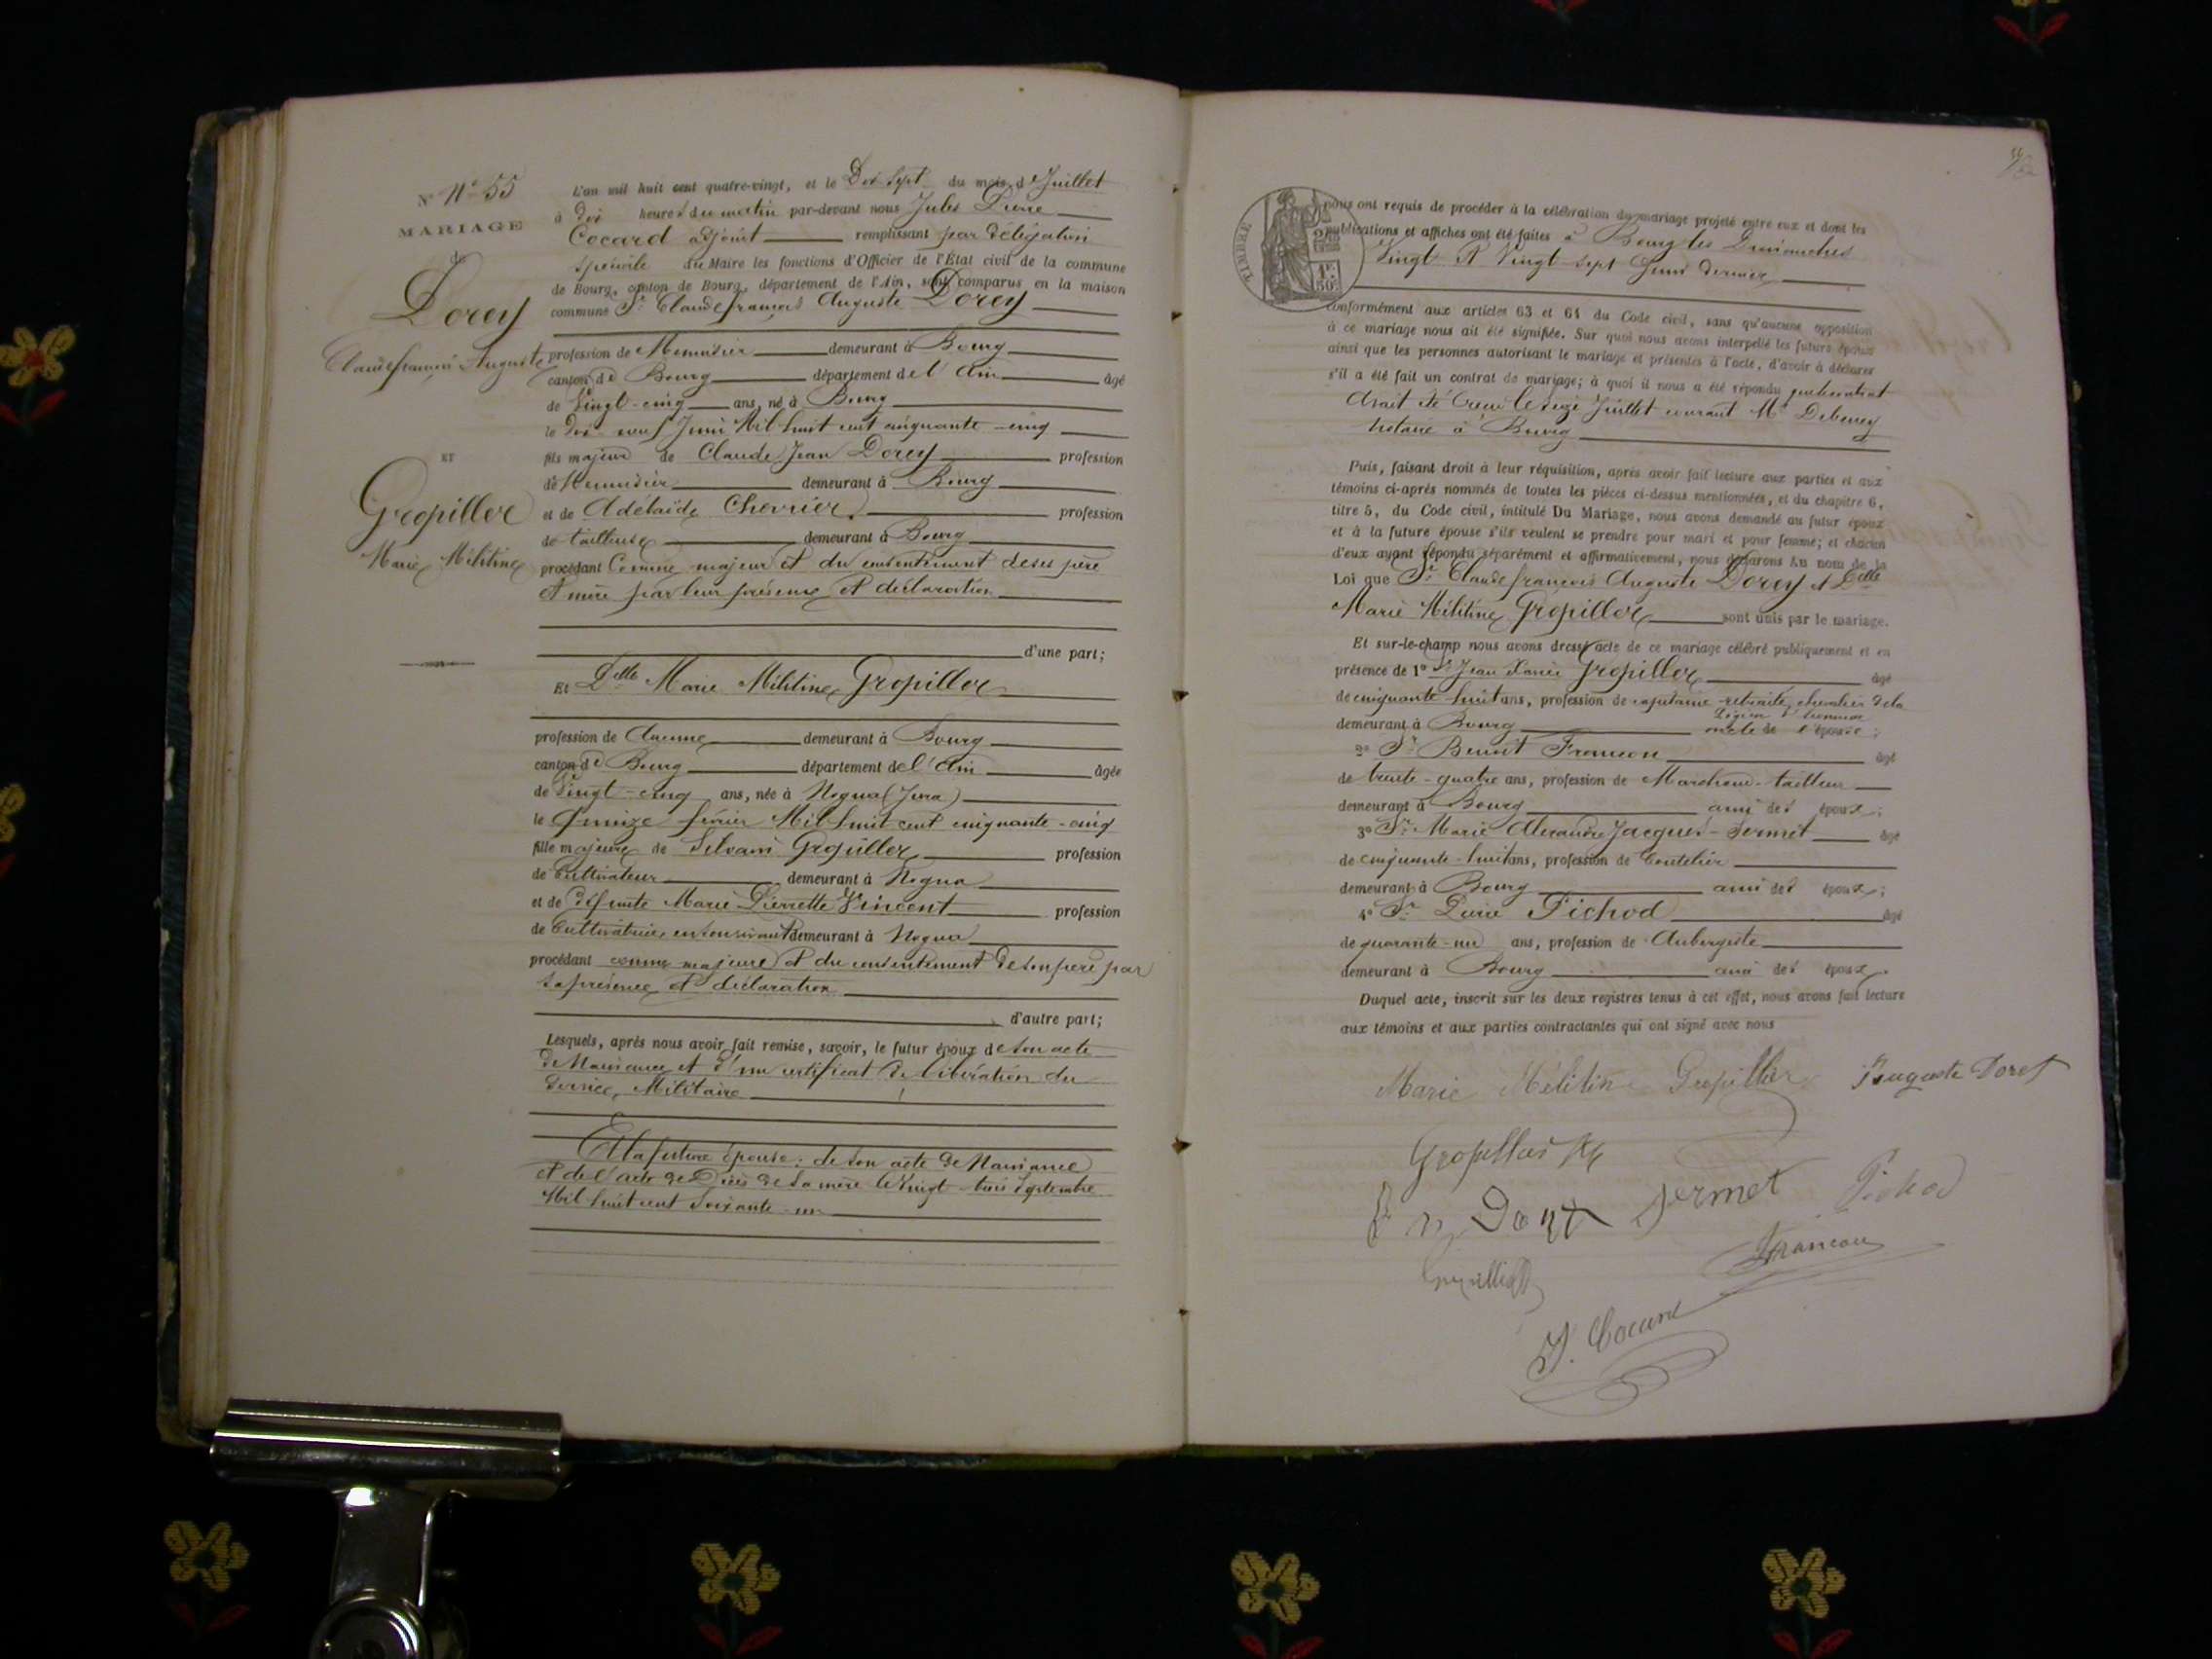 N° N° 55
MARIAGE
de
Dorey
Claude françois Auguste
ET
Gropiller
Marie Mélitine
L'an mil huit cent quatre-vingt, et le Dix Sept du mois d Juillet
à dix heures du matin par-devant nous Jules Pierre
Cocard adjoint remplissant par délégation
spéciale du Maire les fonctions d'Officier de l'État civil de la commune
de Bourg, canton de Bourg, département de l'Ain, sont comparus en la maison
commune Sr Claude françois Auguste Dorey
profession de Menuisier demeurant à Bourg
canton de Bourg département de l'Ain âgé
de Vingt-cinq ans, né à Bourg
le dix-neuf Juin Mil huit cent cinquante-cinq
fils majeur de Claude Jean Dorey profession
de Menuisier demeurant à Bourg
et de Adélaïde Chevrier profession
de tailleuse demeurant à Bourg
procédant Comme majeur et du consentement de ses père
et mère par leur présence et déclaration
d'une part;
Et Delle Marie Mélitine Gropiller
profession de Aucune demeurant à Bourg
canton de Bourg département de l'Ain âgée
de Vingt-cinq ans, née à Nogna (Jura)
le quinze février Mil huit cent cinquante-cinq
fille majeure de Silvain Gropiller profession
de Cultivateur demeurant à Nogna
et de défunte Marie Pierrette Vincent profession
de Cultivatrice, en son vivant demeurant à Nogna
procédant comme majeure et du consentement de son père par
sa présence et déclaration
d'autre part;
Lesquels, après nous avoir fait remise, savoir, le futur époux de son acte
de Naissance et d'un certificat de libération du
Service Militaire
Et la future épouse: de son acte de Naissance
et de l'acte de Décès de sa mère le Vingt-trois Septembre
Mil huit cent Soixante-un
TIMBRE
nous ont requis de procéder à la célébration du mariage projeté entre eux et dont les
publications et affiches ont été faites à Bourg les Dimanches
Vingt et Vingt-sept Juin dernier
conformément aux articles 63 et 64 du Code civil, sans qu'aucune opposition
à ce mariage nous ait été signifiée. Sur quoi nous avons interpellé les futurs époux
ainsi que les personnes autorisant le mariage et présentes à l'acte, d'avoir à déclarer
s'il a été fait un contrat de mariage; à quoi il nous a été répondu que le contrat
avait été reçu le seize Juillet courant Me Debeney
Notaire à Bourg
Puis, faisant droit à leur réquisition, après avoir fait lecture aux parties et aux
témoins ci-après nommés de toutes les pièces ci-dessus mentionnées, et du chapitre 6,
titre 5, du Code civil, intitulé Du Mariage, nous avons demandé au futur époux
et à la future épouse s'ils veulent se prendre pour mari et pour femme; et chacun
d'eux ayant répondu séparément et affirmativement, nous déclarons Au nom de la
Loi que Sr Claude françois Auguste Dorey et Delle
Marie Mélitine Gropiller sont unis par le mariage.
Et sur-le-champ nous avons dressé acte de ce mariage célébré publiquement et en
présence de 1° Sr Jean Xavier Gropiller âgé
de cinquante-huit ans, profession de capitaine retraité, chevalier de la
Légion d'honneur
demeurant à Bourg oncle de l'épouse;
2° Sr Benoit Francon âgé
de trente-quatre ans, profession de Marchand-tailleur
demeurant à Bourg ami des époux;
3° Sr Marie Alexandre Jacques-Sermet âgé
de cinquante-huit ans, profession de Coutelier
demeurant à Bourg ami des époux;
4° Sr Pierre Pichod âgé
de quarante-un ans, profession de Aubergiste
demeurant à Bourg ami des époux.
Duquel acte, inscrit sur les deux registres tenus à cet effet, nous avons fait lecture
aux témoins et aux parties contractantes qui ont signé avec nous
Marie Mélitine Gropiller Auguste Dorey
Sermet Pichod
Francon
J. Cocard